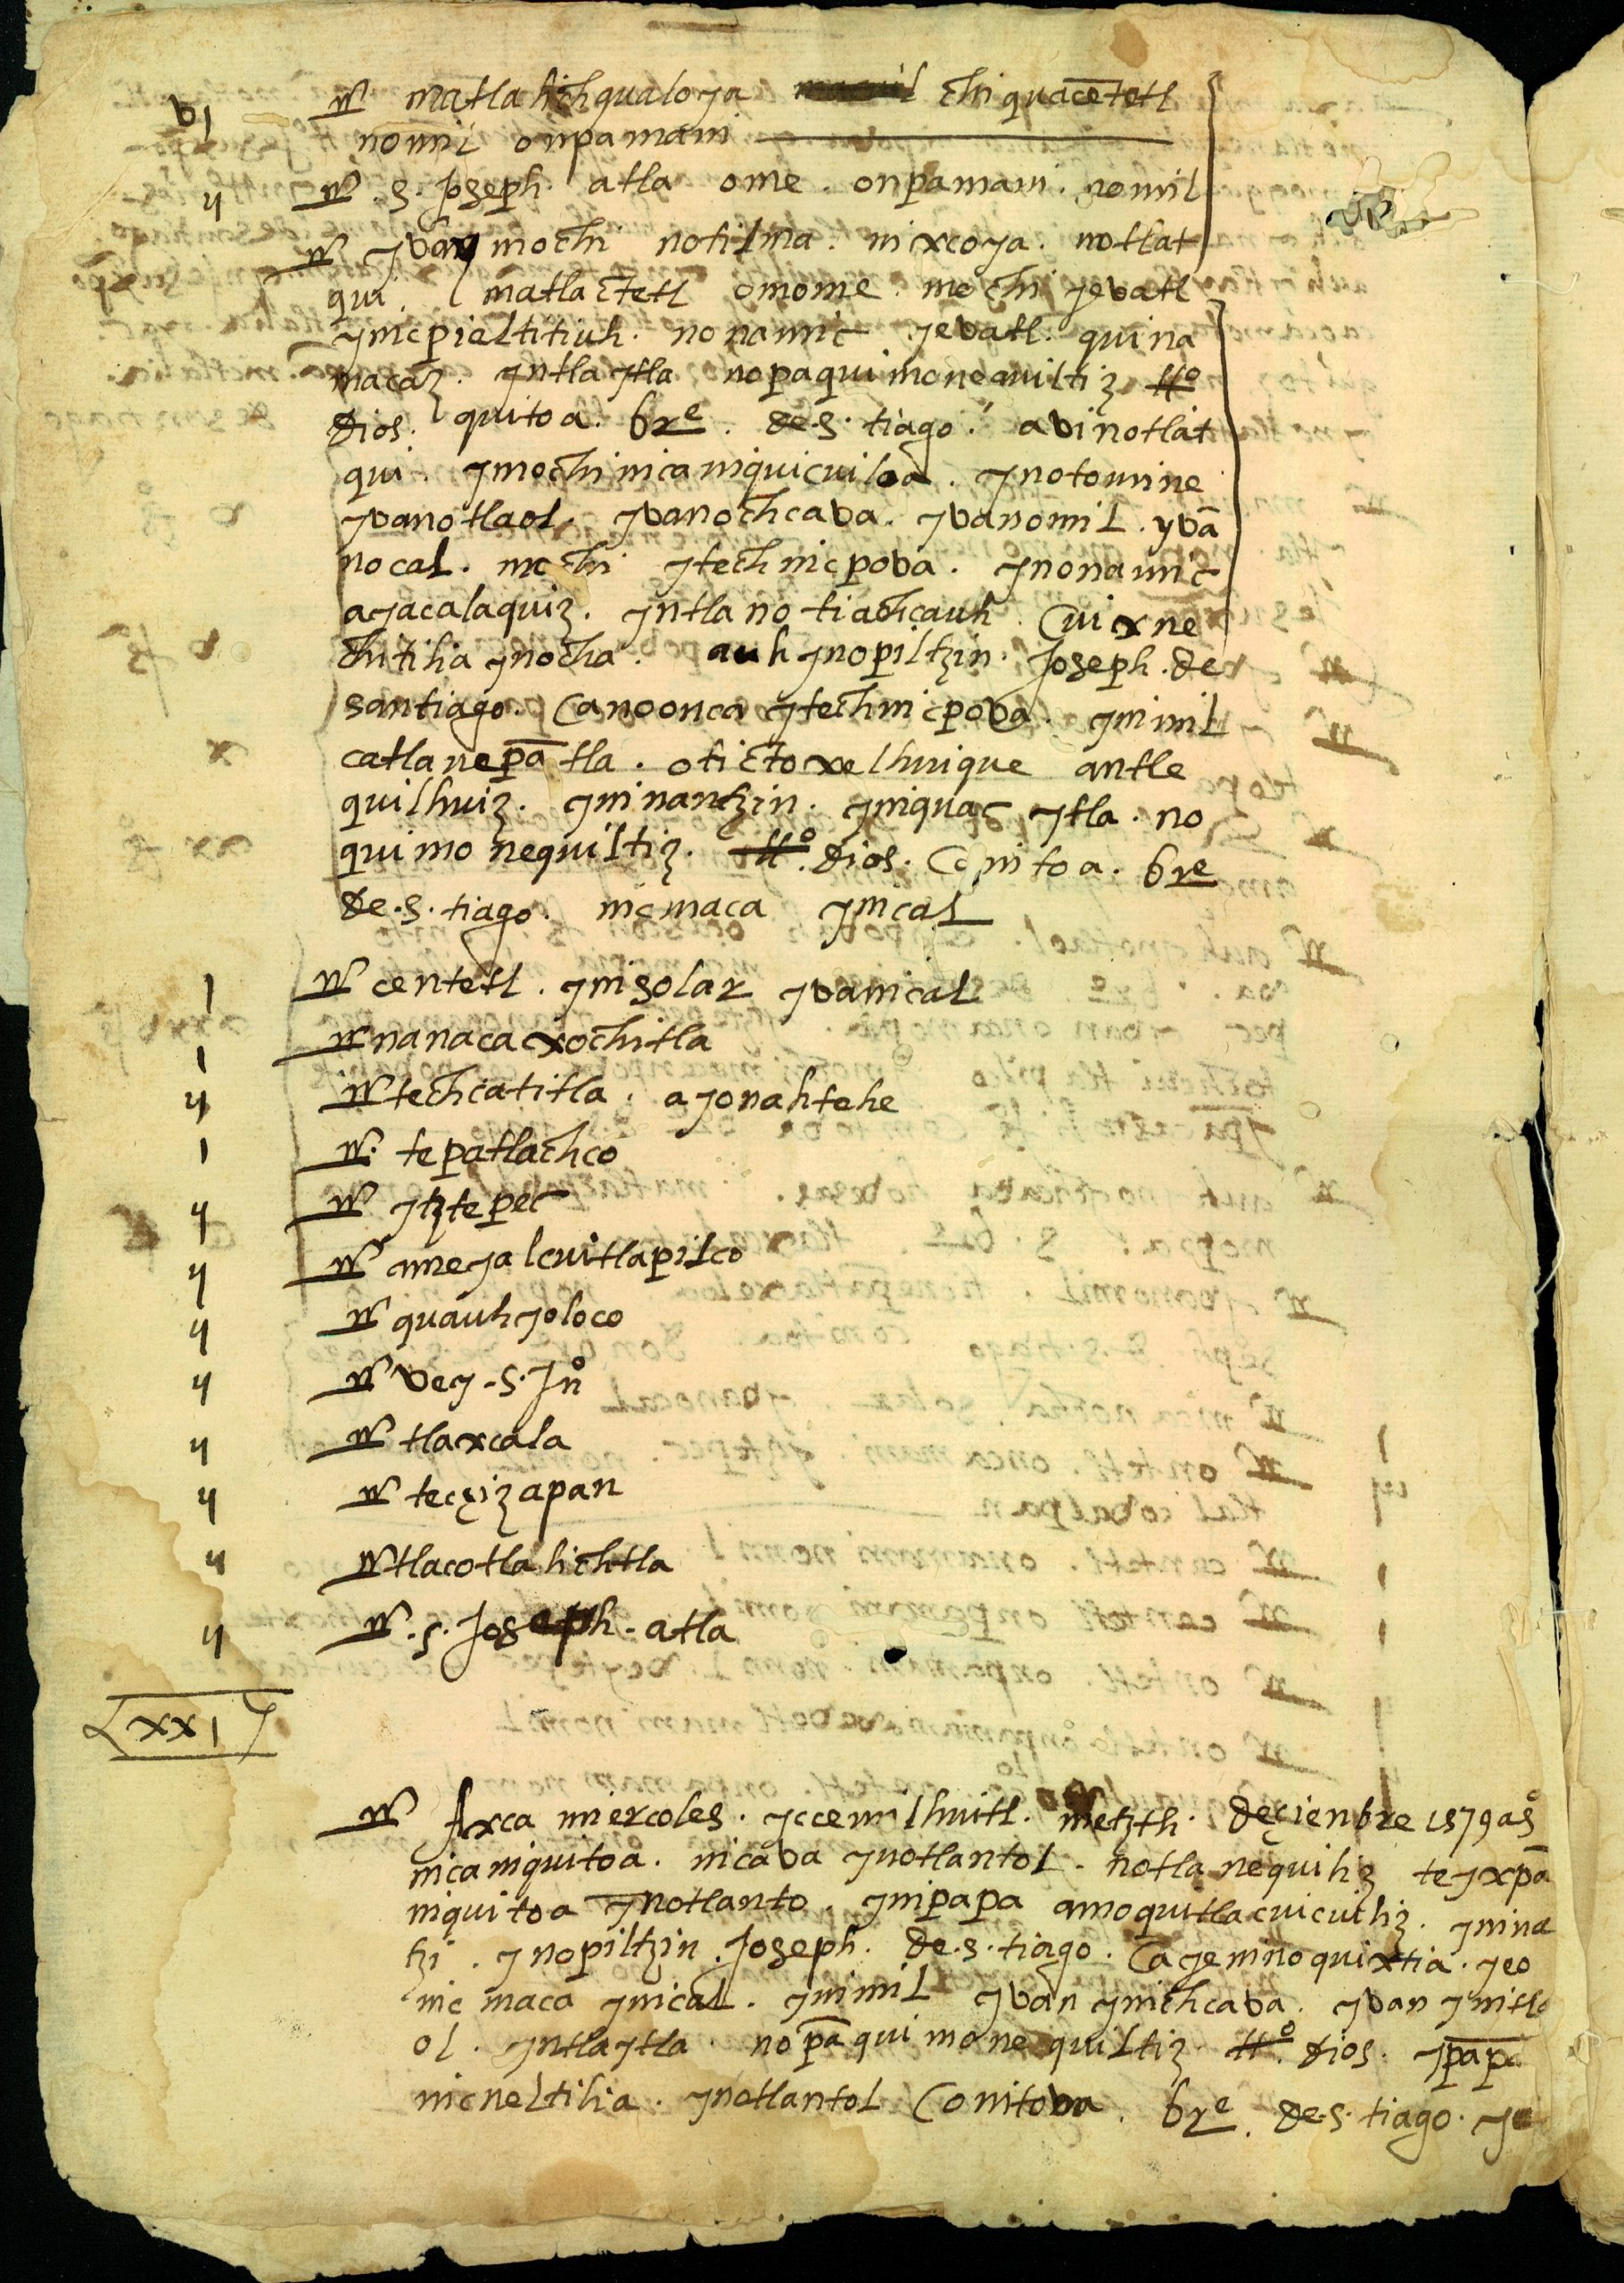 bj ₪ matlahichqualoya chiquacētetl
nomil onpamani
ij ₪ s. Joseph. atla ome. onpamani. nomil
₪ yvan mochi notilma. nixcoya. notlat
qui. matlactetl omome. mochi yevatl
ynicpieltitiuh. nonamic yevatl. quina
macaz. yntla ytla nopaquimonequiltiz tt.o
dios. quitoa. bre. de. s. tiago. avinotlat
qui. ymochi nicaniquicuiloa. ynotomine
yvanotlaol. yvanochcava. yvanomil. yvā
nocal. mochi ytechnicpova. ynonamic
ayacalaquiz. yntla notiachcauh. Cuixne
chtilia ynocha. auh ynopiltzin. Joseph. de
santiago. Canoonca ytechnicpova. ynimil
catlanepātla. otictoxelhuique antle
quilhuiz. yninantzin. yniquac ytla. no
quimonequiltiz. tt.o dios. Conitoa. bre
de. s. tiago. nicmaca ynical
j ₪ centetl. ynisolar yvanical
j ₪ nanacaxochitla
ij ₪ techcatitla. ayonahtehe
j ₪ tepatlachco
ij ₪ ytztepec
ij ₪ ameyalcuitlapilco
ij ₪ quauhyoloco
ij ₪ vey. s. Jnº
ij ₪ tlaxcala
ij ₪ tecçizapan
ij ₪ tlacotlahichtla
ij ₪ s. Joseph. atla
xxj
₪ Axca miercoles. yccemilhuitl. metzth. deçienbre 1579 aºs
nicaniquitoa. nicāva ynotlantol. notlanequiliz teyxpā
niquitoa ynotlanto. ynipapa amoquitlacuicuiliz. ynina
tzi. ynopiltzin. Joseph. de. s. tiago. Cayeninoquixtia. yeo
nicmaca ynical. ynimil yvan ynichcava. yvan ynitla
ol. yntlaytla. nopāquimonequiltiz. tt.o dios. ypāpa
nicneltilia. ynotlantol Conitova. bre. de. s. tiago. ye